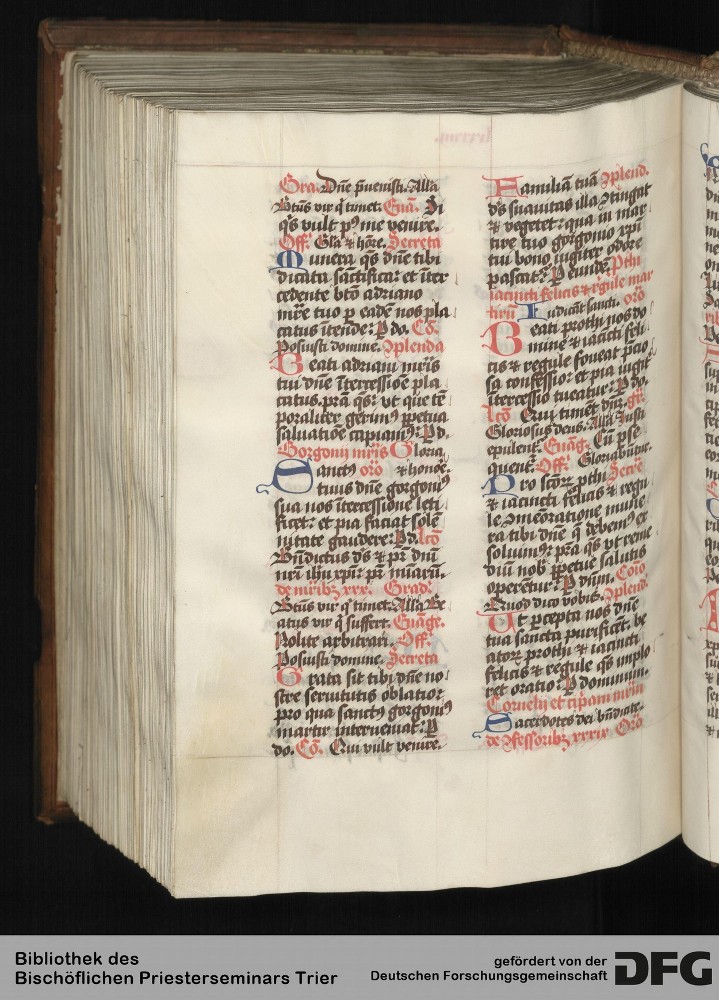 Gra. Dn̄e p̄uenisti. Alla
Bt̄us vir q̄ timet. Euā. Si
q̄s vult p⁹ me venire.
Off. Gl̄a ⁊ hōre. Secreta
Munera q̄s dn̄e tibi
dicata sāctificas et īter
cedente bt̄o adriano
mr̄e tuo p eadē nos pla
catus ītende: P do. Cō.
Posuisti domine. 9plenda
Beati adriani mr̄is
tui dn̄e ītercessiōe pla
catus. p̄ra q̄s: vt que tē
poraliter gerim⁹ ppetua
saluatiōe capiam⁹: P d.
Gorgonij mr̄is Gloria
Sanct⁹ or̄o ⁊ honōe.
tuus dn̄e gorgoni⁹
sua nos ītercessione leti
ficet: et pia faciat solē
nitate gaudere: P d. lcō
Bn̄dictus ds̄ ⁊ pr̄ dn̄i
nr̄i ihu xp̄i: pr̄
de mr̄ibz xxx. Grad.
Bt̄us vir q̄ timet. Alla Be
atus vir q̄ suffert. Euāge.
Nolite arbitrari. Off.
Posuisti domine. Secreta
Grata sit tibi dn̄e no
stre seruitutis oblatio:
pro qua sanct⁹ gorgoni⁹
martir interueniat: P
do. Cō. Qui vult venire.
Familiā tuā 9plend.
ds̄ suauitas illa 9tingat
⁊ vegetet: qua in mar
tire tuo gorgonio xp̄i
tui bono iugiter odore
pascat᷑: P eundē. Pthi
iacincti felicis ⁊ r̄gule mar
tirū Iudicāt sancti. or̄o
Beati prothi nos do
mine ⁊ iacicti feli
cis ⁊ regule foueat p̄cio
sa confessio: et pia iugit᷑
ītercessio tueatur: P do.
lcō Qui timet dm̄. gr̄.
Gloriosus deus. Alla Iusti
epulent᷑. Euāg. Cū pse
quent᷑. Off. Gloriabūtur.
Pro scōr᷑ pthi Secre
⁊ iacincti felicis ⁊ regu
le 9meōratione mune
ra tibi dn̄e q̄ debem⁹ ex
soluim⁹: p̄ra q̄s vt reme
diū nob̄ ppetue salutis
operētur: P dn̄m. Cōio
Quod dico vobis. 9plend.
Ut pcepta nos dn̄e
tua sancta purificēt. be
ator᷑ prothi ⁊ iacincti
felicis ⁊ regule q̄s implo
ret oratio: P dominum.
Cornelij et cip̄ani mr̄m
Sacerdotes dei bn̄dicite.
de 9fessoribz xxxix Or̄o
Bibliothek des
Bischöflichen Priesterseminars Trier
gefördert von der
Deutschen Forschungsgemeinschaft
DFG